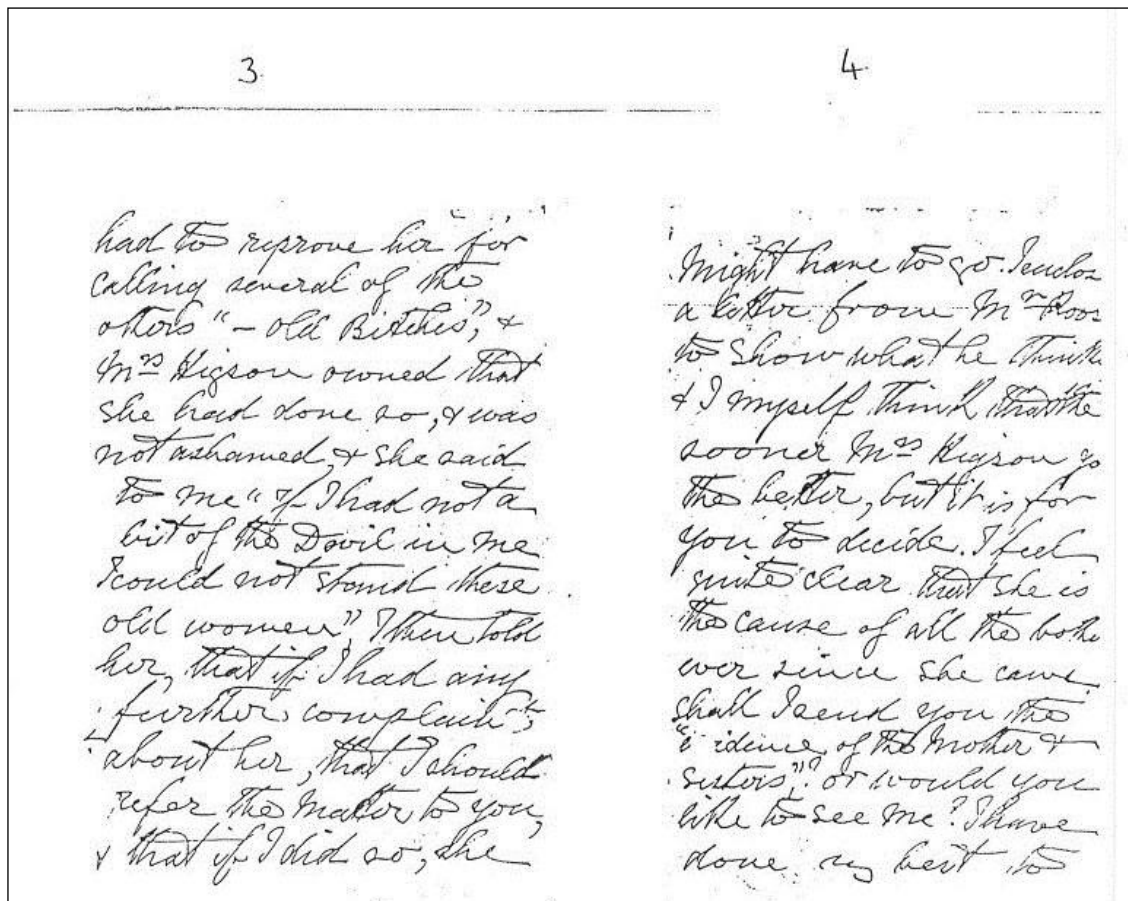 3
had to reprove her for
calling several of the
others "- old Bitches", &
Mrs Higson owned that
she had done so, & was
not ashamed, & she said
to me "if I had not a
bit of the Devil in me
I could not stand these
old women", I then told
her, that if I had any
further complaints
about her, that I should
refer the Matter to you,
& that if I did so, she
4
might have to go. I enclos
a letter from Mr Roos
to show what he think
& I myself think that the
sooner Mrs Higson go
the better, but it is for
you to decide. I feel
quite clear that she is
the cause of all the bothe
ever since she came
shall I send you the
"e idence, of the Mother &
sisters,"? or would you
like to see me? I have
done my best to